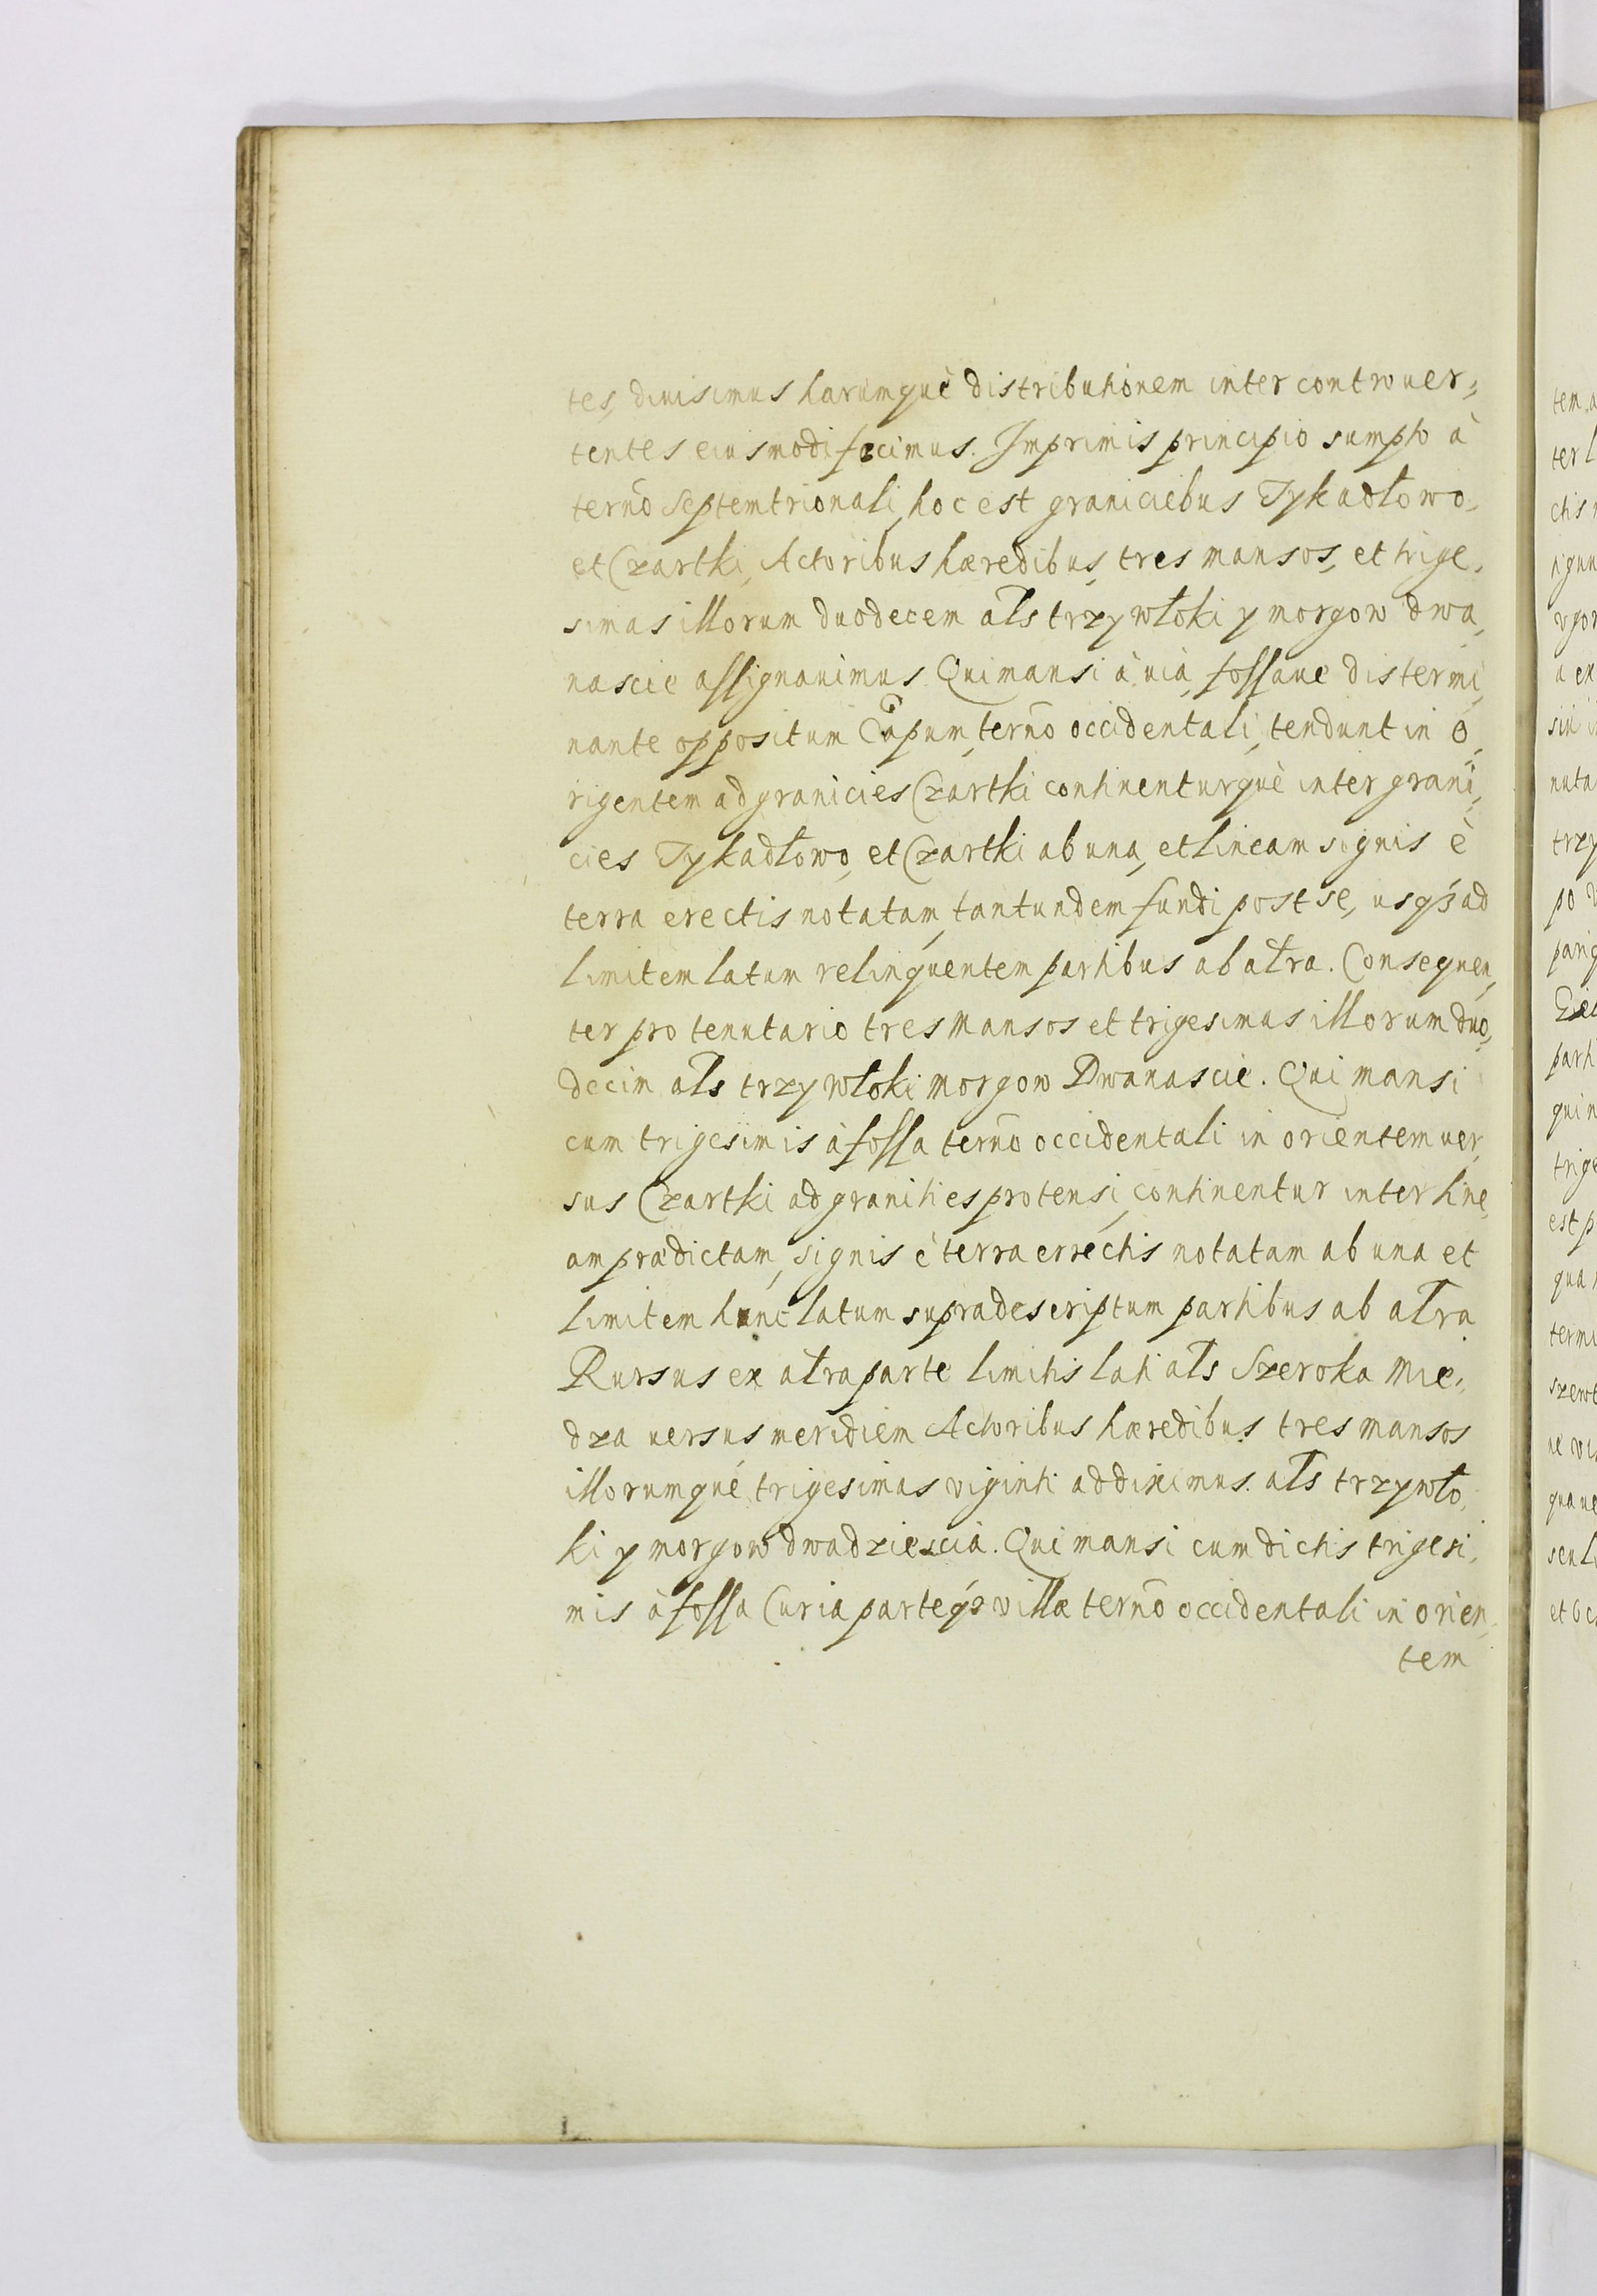 tes, diuisimus harumquè distributionem inter controuer,,
tentes eiusmodi fecimus. Imprimis principio sumpto à
term̄o Septemtrionali, hoc est graniciebus Tykadłowo,
et Czartki, Actoribus hæredibus, tres mansos, et trige,
simas illorum duodecem als trzy włoki y morgow dwa,
nascie assignauimus Qui mansi à uia, fossaue distermi,
nante oppositum Capum, term̄o occidentali, tendunt in o,
rigentem ad granicies Czartki continenturquè inter grani,
cies Tykadłowo, et Czartki ab una, et lineam signis è
terra erectis notatam, tantundem fundi post se, usq3 ad
limitem latum relinquentem partibus ab altra. Consequen,
ter pro tenutario tres mansos et trigesimas illorum duo,
decim als trzy włoki morgow Dwanascie. Qui mansi
cum trigesimis à fossa term̄o occidentali in orientem uer,
sus Czartki ad granities protensi, continentur inter line,
am prædictam, signis è terra errectis notatam ab una et
limitem hunc latum supradescriptum partibus ab altra
Rursus ex altra parte limitis lati als Szeroka Mie,
dza uersus meridiem Actoribus hæredibus tres mansos
illorumqué trigesimas viginti addiximus. als trzy wło,
ki y morgow dwadziescia. Qui mansi cum dictis trigesi,
mis à fossa Curia parteq3 villæ term̄o occidentali in orien,
tem